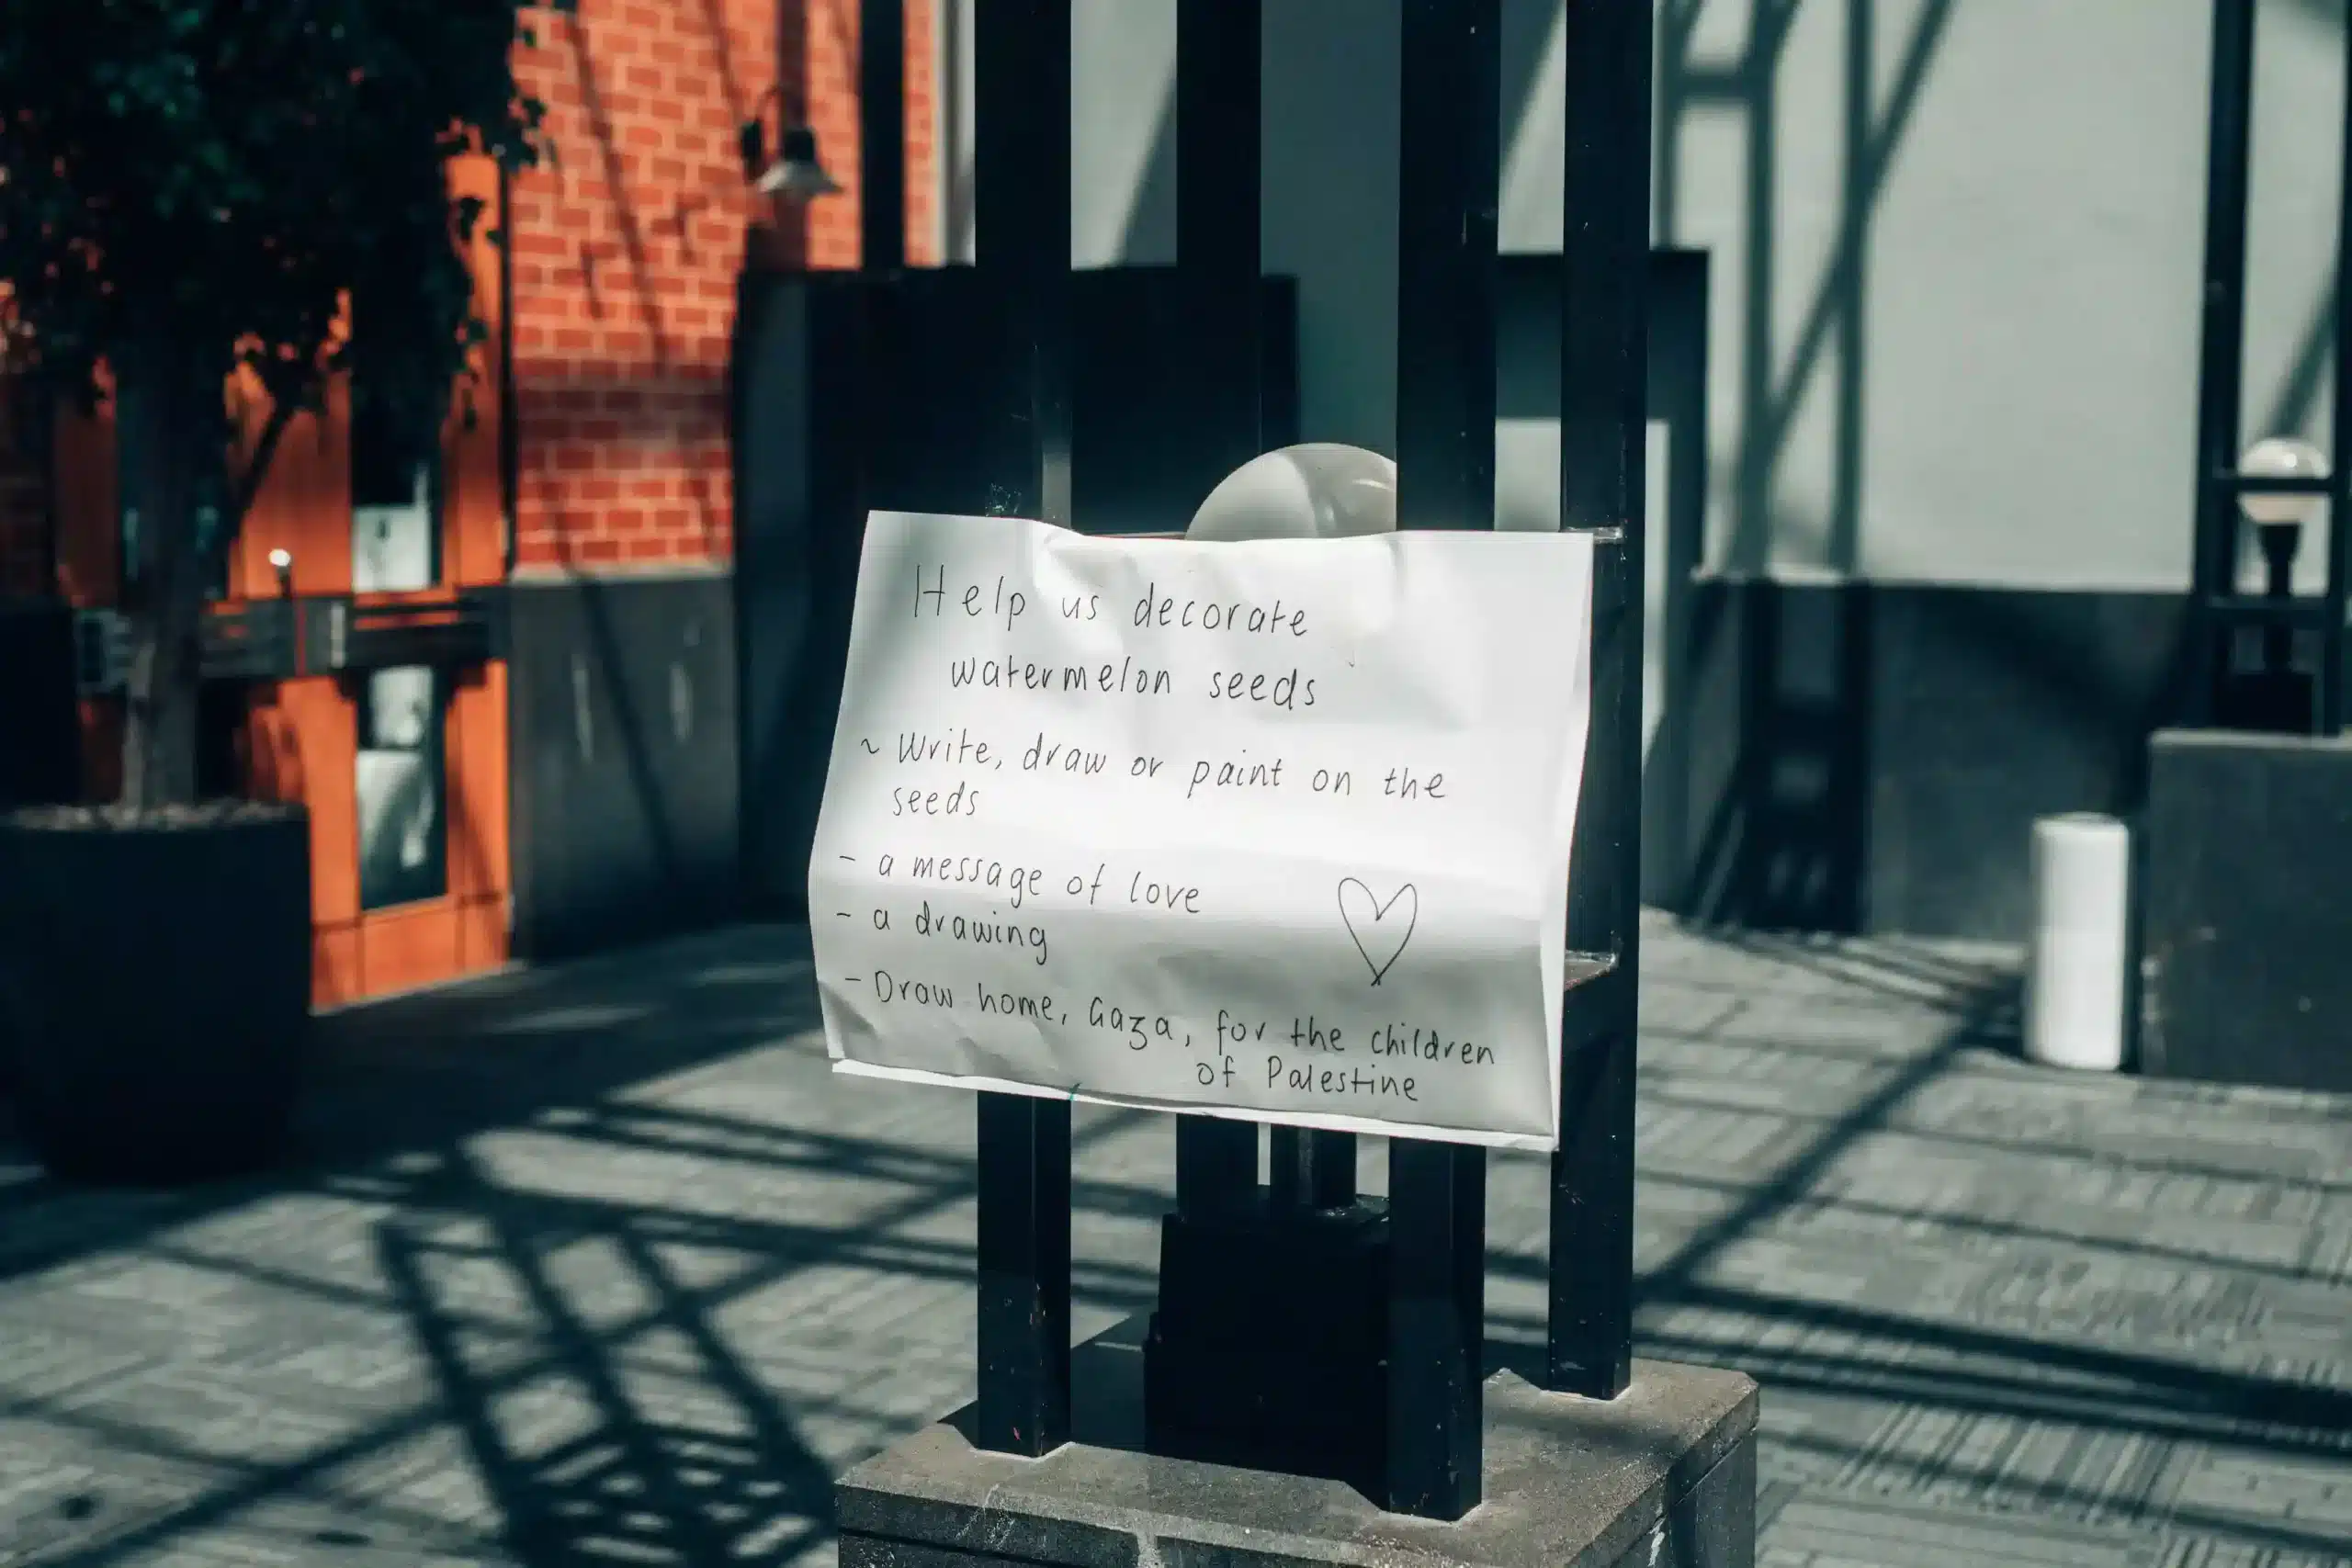 Help us decorate
watermelon seeds
~ Write, draw or paint on the
seeds
- a message of love
- a drawing
- Draw home, Gaza, for the children
of Palestine